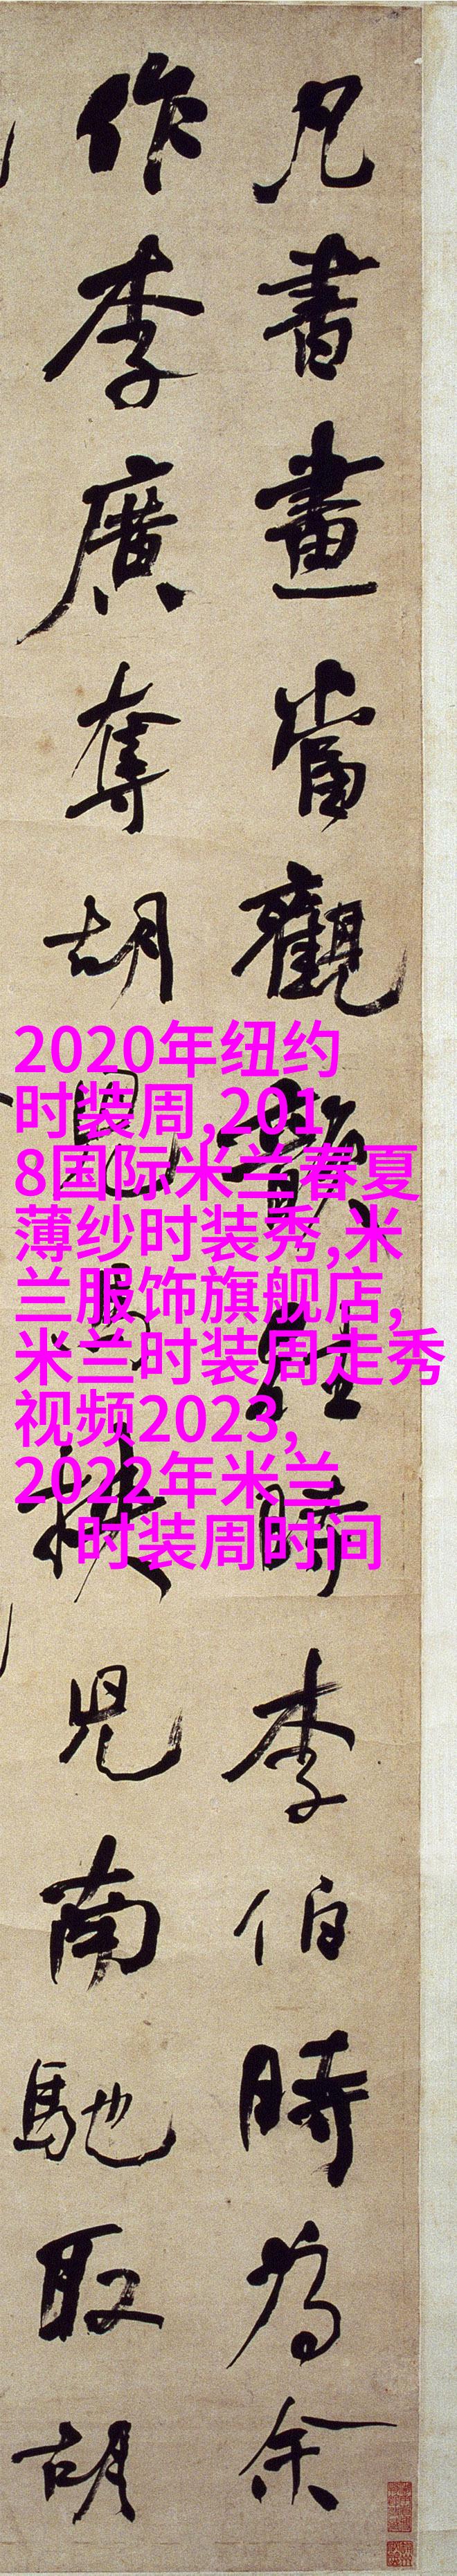 凡書畫當觀韻往時李伯時為余
作李廣奪胡兒馬挾兒南馳取胡
2020年纽约
时装周,201
8国际米兰春夏
薄纱时装秀,米
兰服饰旗舰店,
米兰时装周走秀
视频2023,
2022年米兰
时装周时间